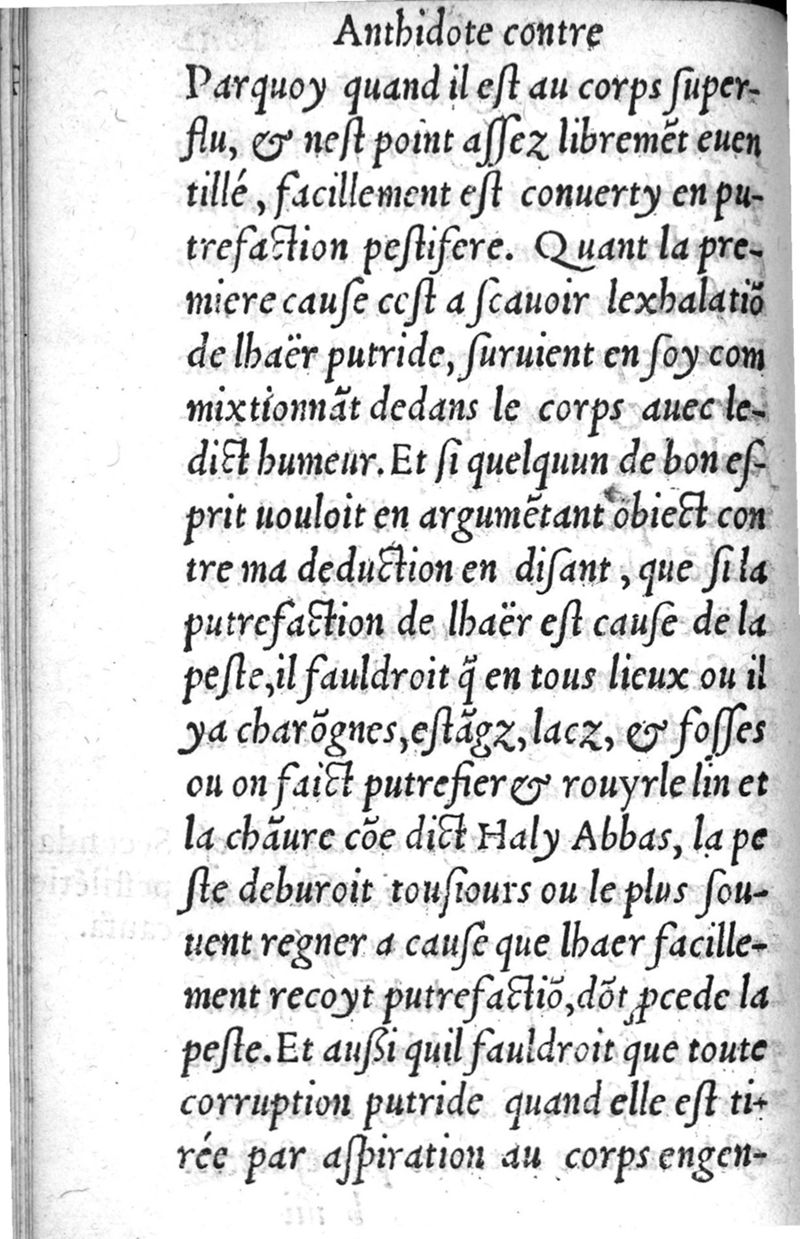 Anthidote contre
Parquoy quand il eſt au corps ſuper-
flu, & neſt point aſſez libremēt euen
tillé, facillement eſt conuerty en pu-
trefaction peſtifere. Quant la pre-
miere cauſe ceſt a ſcauoir lexhalatiõ
de lhaër putride, ſuruient en ſoy com
mixtionnãt dedans le corps auec le-
dict humeur. Et ſi quelquun de bon eſ-
prit uouloit en argumētant obiect con
tre ma deduction en diſant, que ſi la
putrefaction de lhaër eſt cauſe de la
peſte, il fauldroit q̃ en tous lieux ou il
ya charõgnes, eſtãgz, lacz, & foſſes
ou on faict putrefier & rouyr le lin et
la chãure cõe dict Haly Abbas, la pe
ſte deburoit touſiours ou le plus ſou-
uent regner a cauſe que lhaer facille-
ment recoyt putrefactiõ, dõt ꝓcede la
peſte. Et auſſi quil fauldroit que toute
corruption putride quand elle eſt ti-
rée par aſpiration au corps engen-